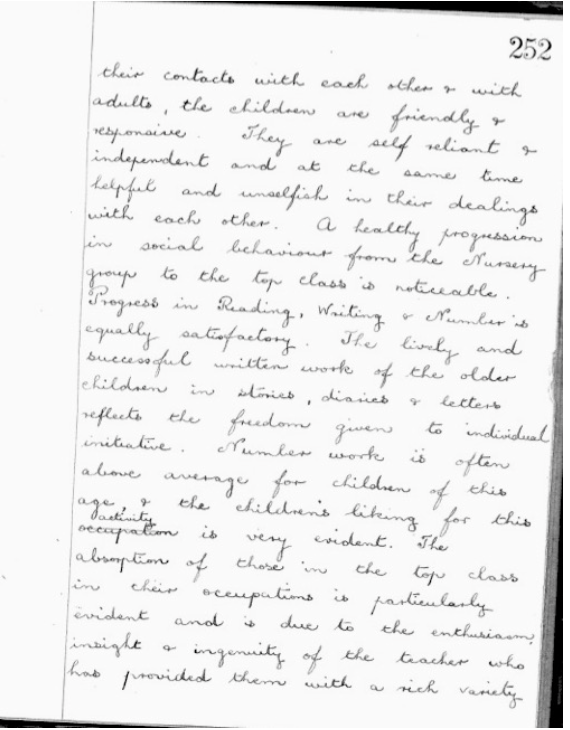 252
their contacts with each other & with
adults, the children are friendly &
responsive. They are self reliant &
independent and at the same time
helpful and unselfish in their dealings
with each other. A healthy progression
in social behaviour from the Nursery
group to the top class is noticeable.
Progress in Reading, Writing & Number is
equally satisfactory. The lively and
successful written work of the older
children in stories, diaries & letters
reflects the freedom given to individual
initiative. Number work is often
above average for children of this
age, & the children's liking for this
activity
occupation is very evident. The
absorption of those in the top class
in their occupations is particularly
evident and is due to the enthusiasm,
insight & ingenuity of the teacher who
has provided them with a rich variety